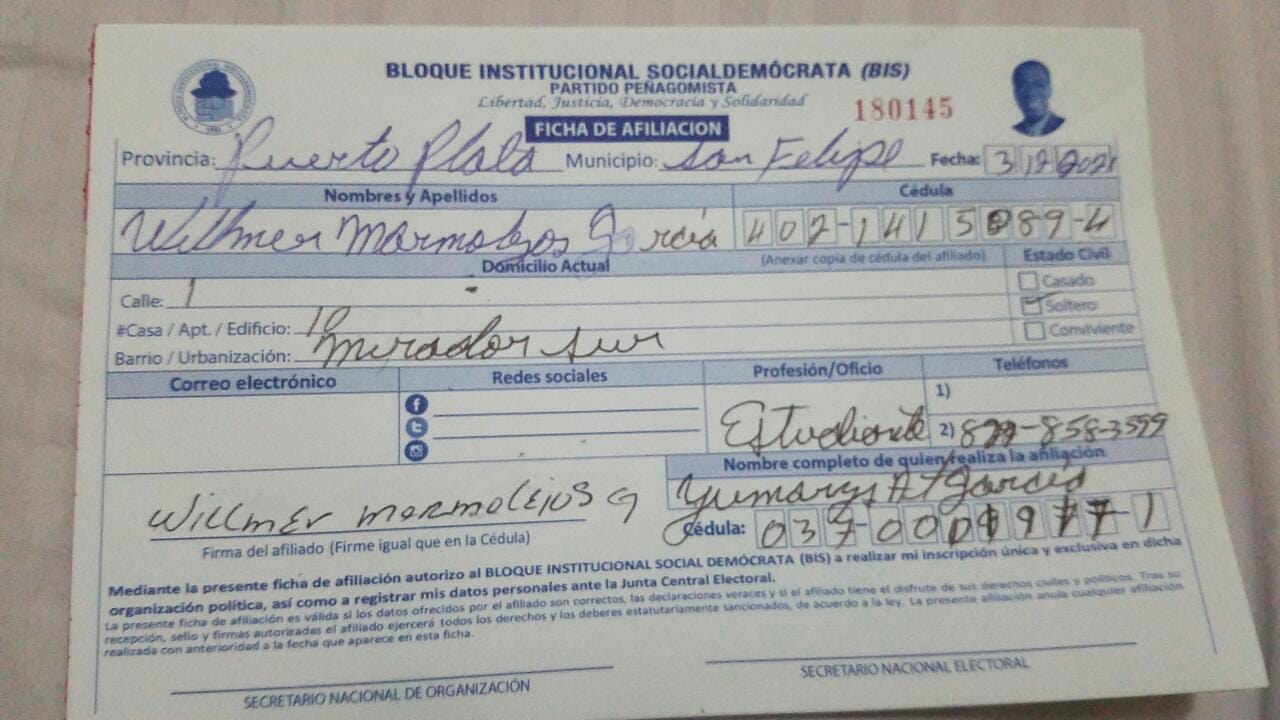 BLOQUE INSTITUCIONAL SOCIALDEMÓCRATA (BIS)
PARTIDO PEÑAGOMISTA
Libertad, Justicia, Democracia y Solidaridad
180145
FICHA DE AFILIACION
Provincia: Puerto Plata Municipio: San Felipe Fecha: 3 12 2021
Nombres y Apellidos Cédula
Willmer Marmolejos García 402-1415089-4
Domicilio Actual (Anexar copia de cédula del afiliado) Estado Civil
Calle: 1 Casado
#Casa / Apt. / Edificio: 10 Soltero
Barrio / Urbanización: Mirador sur Conviviente
Correo electrónico Redes sociales Profesión/Oficio Teléfonos
1)
Estudiante 2) 829-858-3599
Nombre completo de quien realiza la afiliación
Yumarys García
Willmer marmolejos G
Cédula: 037-000 977-1
Firma del afiliado (Firme igual que en la Cédula)
Mediante la presente ficha de afiliación autorizo al BLOQUE INSTITUCIONAL SOCIAL DEMÓCRATA (BIS) a realizar mi inscripción única y exclusiva en dicha
organización política, así como a registrar mis datos personales ante la Junta Central Electoral.
La presente ficha de afiliación es válida si los datos ofrecidos por el afiliado son correctos, las declaraciones veraces y si el afiliado tiene el disfrute de sus derechos civiles y políticos. Tras su
recepción, sello y firmas autorizadas el afiliado ejercerá todos los derechos y los deberes estatutariamente sancionados, de acuerdo a la ley. La presente afiliación anula cualquier afiliación
realizada con anterioridad a la fecha que aparece en esta ficha.
SECRETARIO NACIONAL DE ORGANIZACIÓN SECRETARIO NACIONAL ELECTORAL